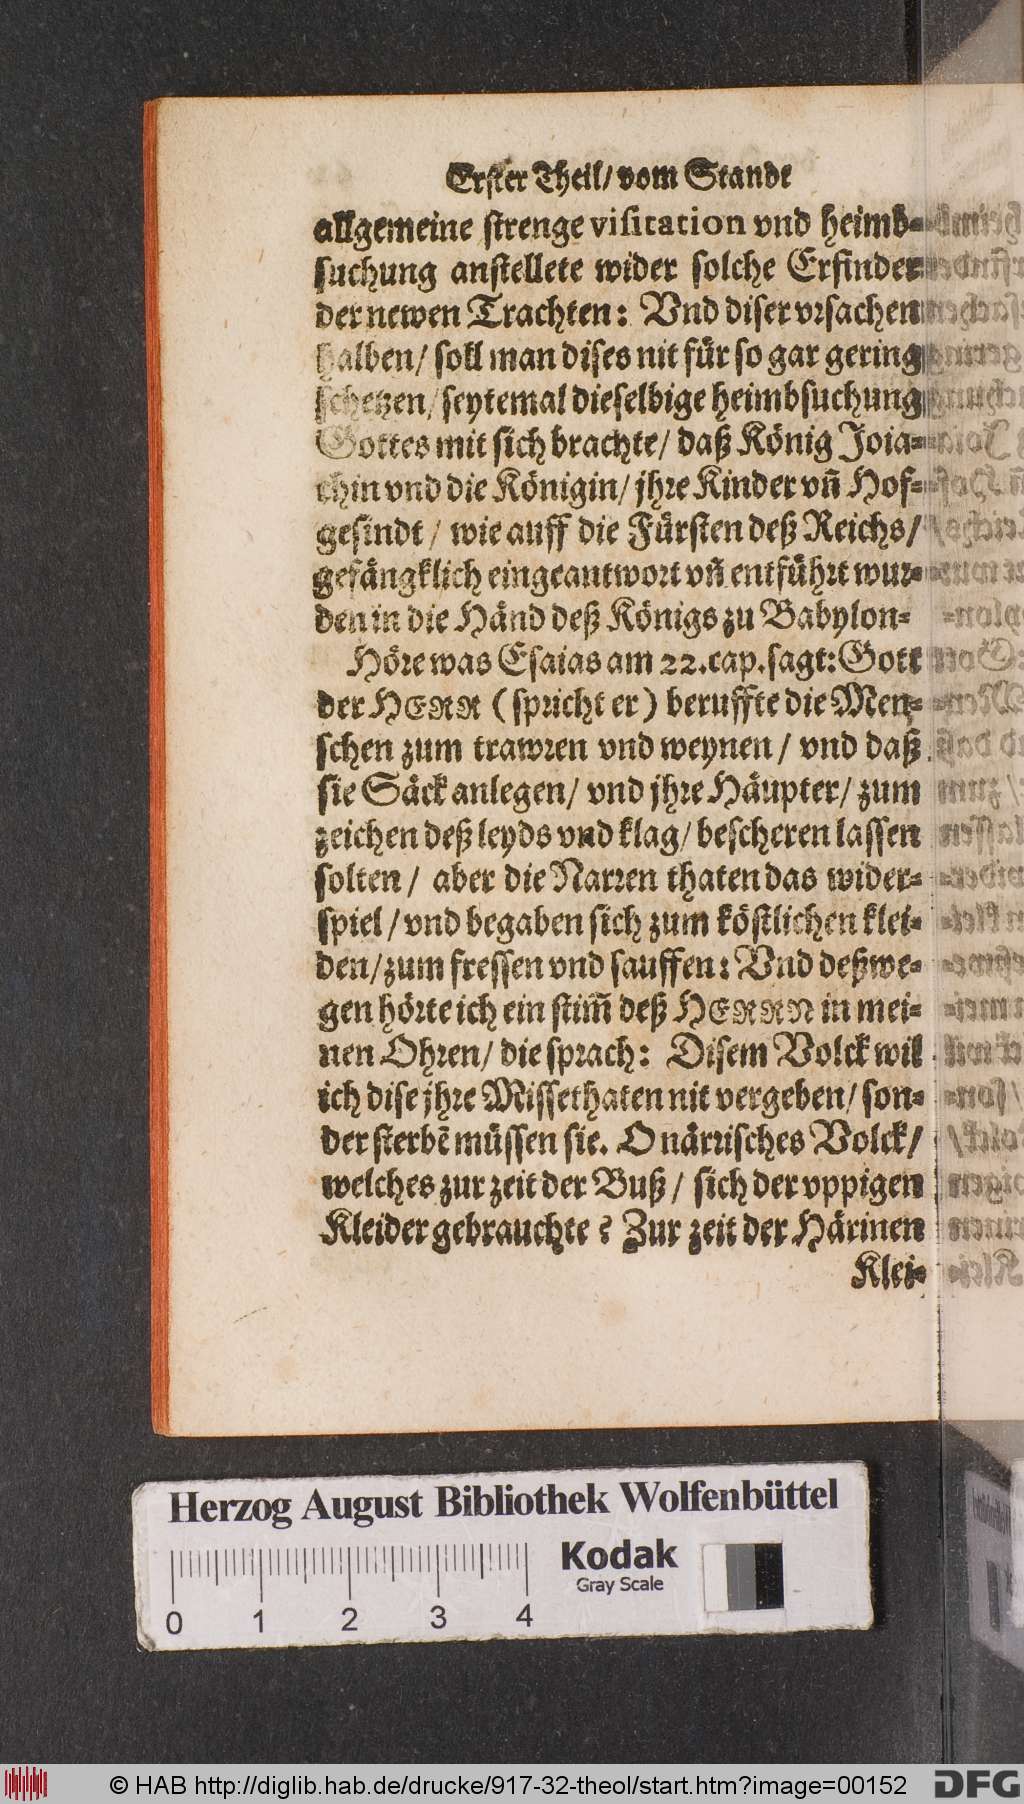 Erster Theil/ vom Stande
allgemeine strenge visitation vnd heimb-
suchung anstellete wider solche Erfinder
der newen Trachten: Vnd diser vrsachen
halben/ soll man dises nit für so gar gering
schetzen/ seytemal dieselbige heimbsuchung
Gottes mit sich brachte/ daß König Joia-
chin vnd die Königin/ jhre Kinder vñ Hof-
gesindt/ wie auff die Fürsten deß Reichs/
gefängklich eingeantwort vñ entführt wur-
den in die Händ deß Königs zu Babylon-
Höre was Esaias am 22. cap. sagt: Gott
der HERR (spricht er) beruffte die Men-
schen zum trawren vnd weynen/ vnd daß
sie Säck anlegen/ vnd jhre Häupter/ zum
zeichen deß leyds vnd klag/ bescheren lassen
solten/ aber die Narren thaten das wider-
spiel/ vnd begaben sich zum köstlichen klei-
den/ zum fressen vnd sauffen: Vnd deßwe-
gen hörte ich ein stim̃ deß HERRN in mei-
nen Ohren/ die sprach: Disem Volck wil
ich dise jhre Missethaten nit vergeben/ son-
der sterbẽ müssen sie. O närrisches Volck/
welches zur zeit der Buß/ sich der vppigen
Kleider gebrauchte? Zur zeit der Härinen
Klei-
Herzog August Bibliothek Wolfenbüttel
Kodak
Gray Scale
0 1 2 3 4
© HAB http://diglib.hab.de/drucke/917-32-theol/start.htm?image=00152
DFG